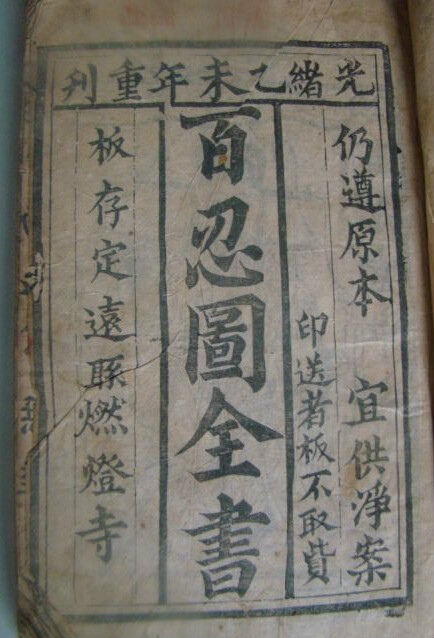 光緒乙未年重刊
仍遵原本 宜供淨案
印送者板不取貲
百忍圖全書
板存定遠縣燃燈寺